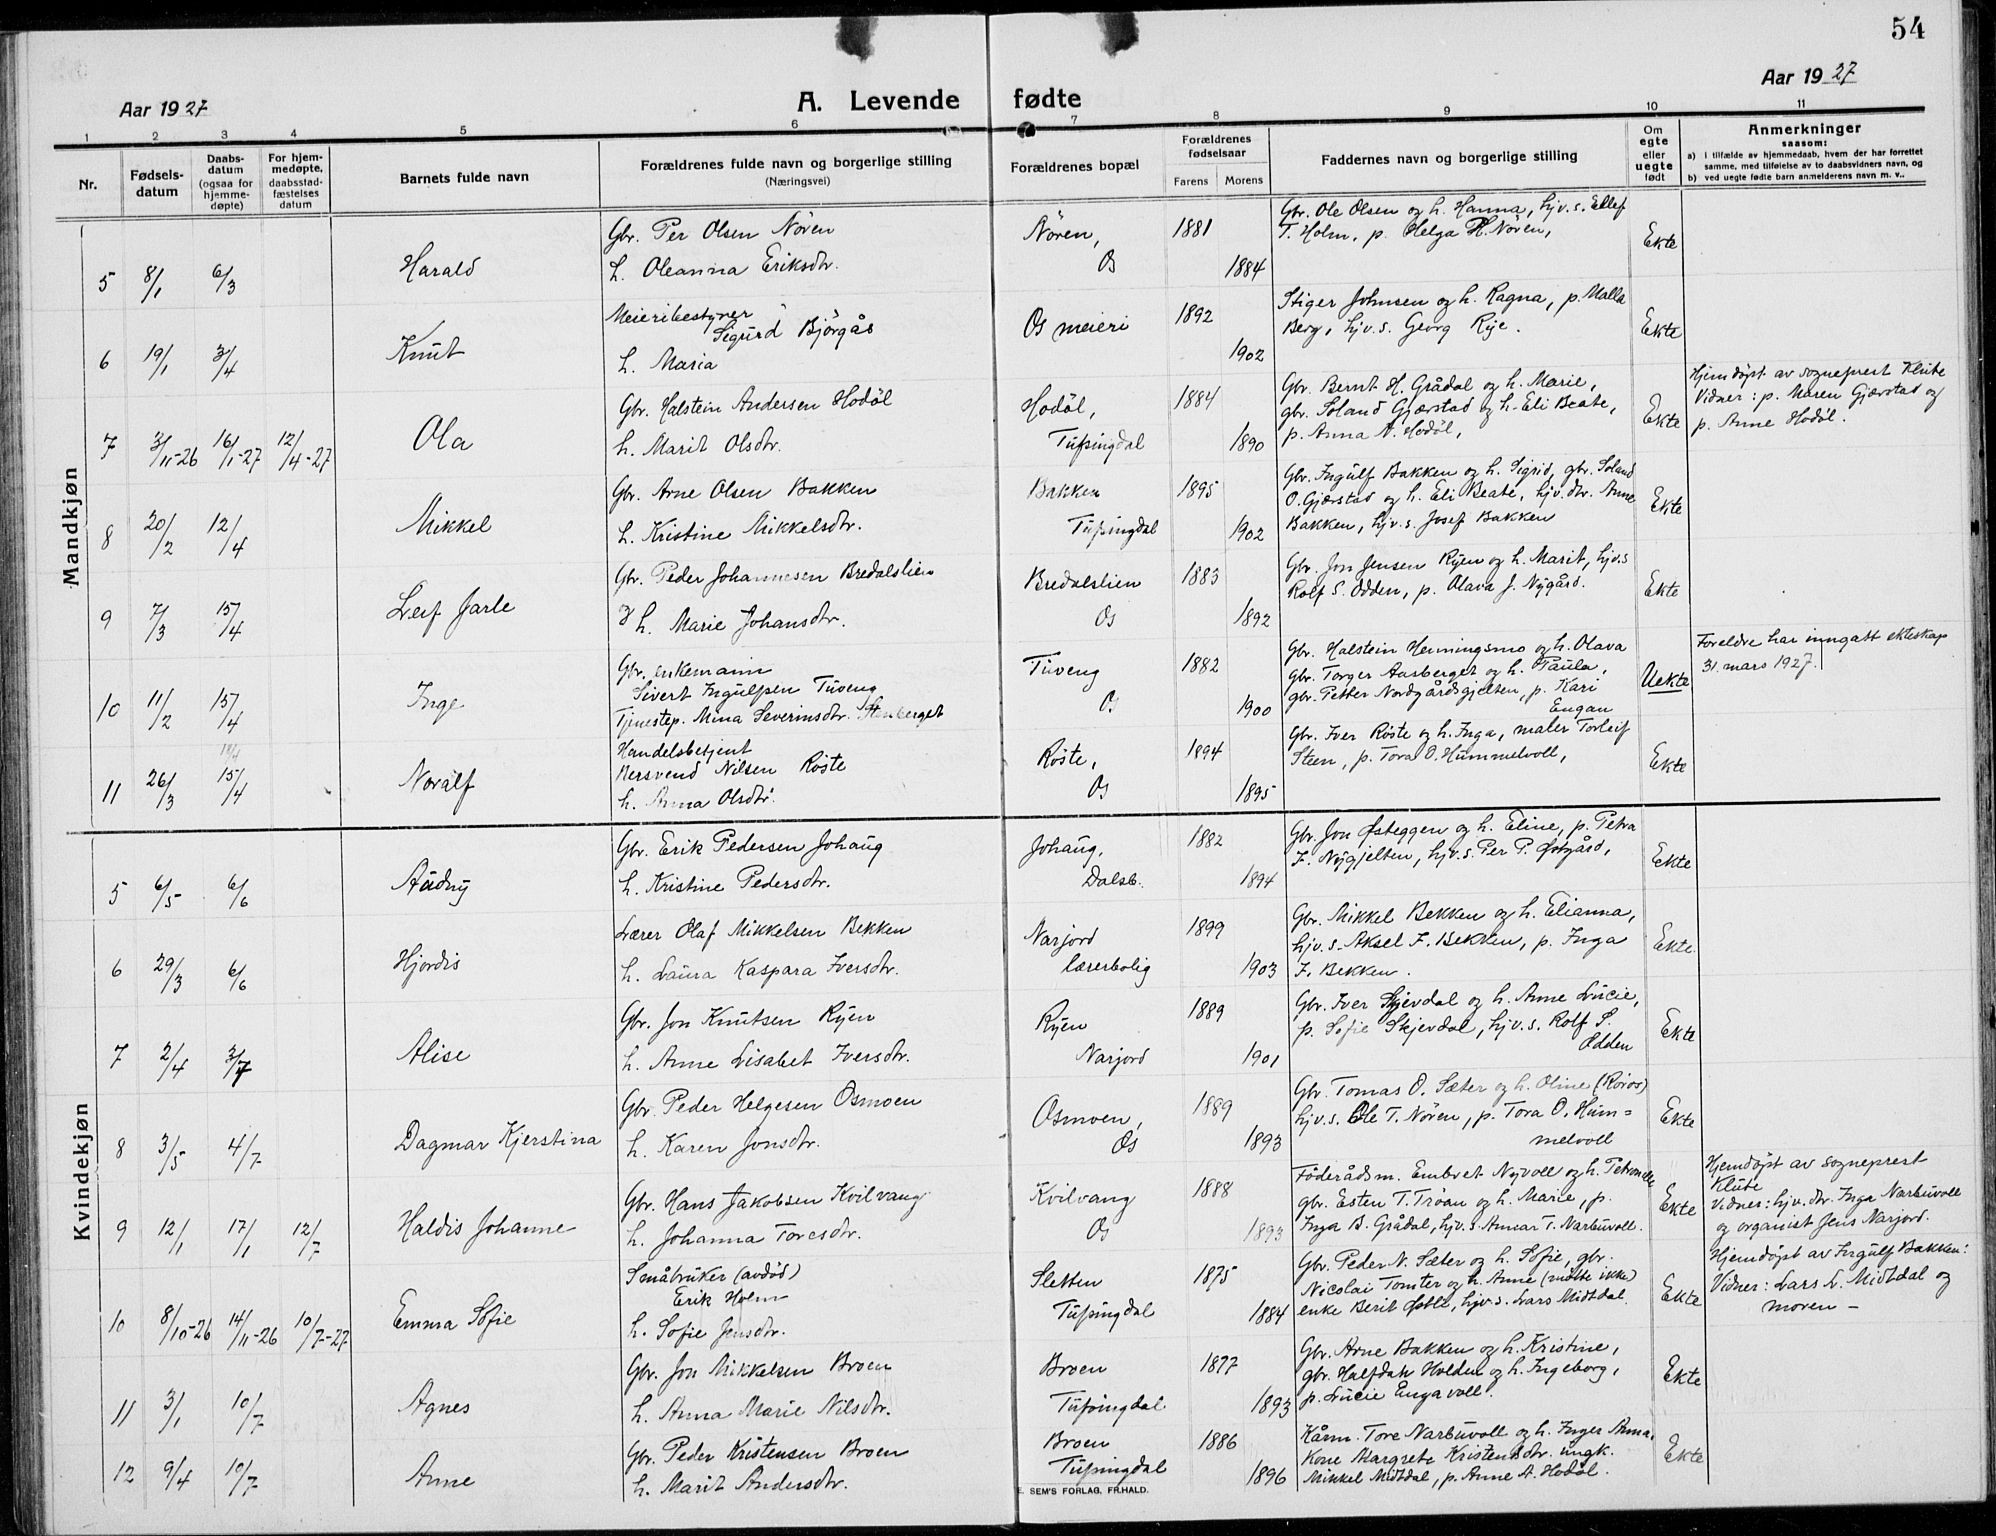 54
Aar 1927
A. Levende fødte
Aar 1927
1 2 3 4 5 6 7 8 9 10 11
Nr.
Fødsels-
datum
Daabs-
datum
(ogsaa for
hjemme-
døpte)
For hjem-
medøpte,
daabsstad-
fæstelses
datum
Barnets fulde navn
Forældrenes fulde navn og borgerlige stilling
(Næringsvei)
Forældrenes bopæl
Forældrenes
fødselsaar
Farens Morens
Faddernes navn og borgerlige stilling
Om
egte
eller
uegte
født
Anmerkninger
saasom:
a) i tilfælde av hjemmedaab, hvem der har forrettet
samme, med tilføielse av to daabsvidners navn, og
b) ved uegte fødte barn anmelderens navn m. v..
Mandkjøn
5 8/1 6/3 Harald
Gbr. Per Olsen Nören
h. Oleanna Eriksdtr.
Nören,
Os
1881
1884
Gbr. Ole Olsen og h. Hanna, hjv.s. Ellef
T. Holm, p. Helga H. Nören,
Ekte
6 19/1 3/4 Knut
Meieribestyrer
Sigurd Björgås
h. Maria
Os meieri
1892
1902
Stiger Johnsen og h. Ragna, p. Malla
Berg, hjv.s. Georg Rye.
Ekte
7 3/11-26 16/1-27 12/4-27 Ola
Gbr. Halstein Andersen Hodöl
h. Marit Olsdtr.
Hodöl,
Tufsingdal
1884
1890
Gbr. Bernt H. Grådal og h. Marie,
gbr. Soland Gjærstad og h. Eli Beate,
p. Anna N. Hodöl,
Ekte
Hjemdöpt av sogneprest Klube
Vidner: p. Maren Gjærstad og
p. Anne Hodöl.
8 20/2 12/4 Mikkel
Gbr. Arne Olsen Bakken
h. Kristine Mikkelsdtr.
Bakken
Tufsingdal
1895
1902
Gbr. Ingulf Bakken og h. Sigrid, gbr. Soland
O. Gjærstad og h. Eli Beate, hjv. dtr. Anne
Bakken, hjv.s. Josef Bakken
Ekte
9 7/3 15/4 Leif Jarle
Gbr. Peder Johannesen Bredalslien
h. Marie Johansdtr.
Bredalslien
Os
1883
1892
Gbr. Jon Jensen Ryen og h. Marit, hjv.s
Rolf S. Odden, p. Olava J. Nygård.
Ekte
10 11/2 15/4 Inge
Gbr. enkemann
Sivert Ingulfsen Tuveng
Tjenestep. Mina Severinsdtr. Stenberget
Tuveng
Os
1882
1900
Gbr. Halstein Henningsmo og h. Olava
gbr. Torger Aasberget og h. Paula,
gbr. Petter Nordgårdsgjelten, p. Kari
Engan
Uekte
Foreldre har inngått ekteskap
31. mars 1927.
11 26/3 15/4 Noralf
Handelsbetjent
Bersvend Nilsen Röste
h. Anna Olsdtr.
Röste,
Os
1894
1895
Gbr. Iver Röste og h. Inga, maler Torleif
Steen, p. Tora O. Hummelvoll,
Ekte
Kvindekjøn
5 6/5 6/6 Audny
Gbr. Erik Pedersen Johaug
h. Kristine Pedersdtr.
Johaug,
Dalsb.
1882
1894
Gbr. Jon Østeggen og h. Eline, p. Petra
I. Nygjelten, hjv.s. Per P. Østgård,
Ekte
6 29/3 6/6 Hjordis
Lærer Olaf Mikkelsen Bekken
h. Laura Kaspara Iversdtr.
Narjord
lærerbolig
1899
1903
Gbr. Mikkel Bekken og h. Elianna,
hjv.s. Aksel I. Bekken, p. Inga
I. Bekken.
Ekte.
7 2/4 3/7 Alise
Gbr. Jon Knutsen Ryen
h. Anne Lisabet Iversdtr.
Ryen
Narjord
1889
1901
Gbr. Iver Skjevdal og h. Anne Lucie,
p. Sofie Skjevdal, hjv.s. Rolf S.
Odden
Ekte
8 3/5 4/7 Dagmar Kjerstina
Gbr. Peder Helgesen Osmoen
h. Karen Jonsdtr.
Osmoen,
Os
1889
1893
Gbr. Tomas O. Sæter og h. Oline (Röros)
hjv.s. Ole T. Nören, p. Tora O. Hum=
melvoll
Ekte
9 12/1 17/1 12/7 Haldis Johanne
Gbr. Hans Jakobsen Kvilvang
h. Johanna Toresdtr.
Kvilvang
Os
1888
1893
Föderådsm. Embret Nyvoll og h. Petronelle
gbr. Esten T. Tröan og h. Marie, p.
Inga B. Grådal, hjv.s. Annar T. Narbuvoll.
Ekte
Hjemdöpt av sogneprest
Klube
Vidner: hjv. dtr. Inga Narbuvoll
og organist Jens Narjord.
10 8/10-26 14/11-26 10/7-27 Emma Sofie
Småbruker (avdöd)
Erik Holm
h. Sofie Jensdtr.
Sletten
Tufsingdal
1875
1884
Gbr. Peder N. Sæter og h. Sofie, gbr.
Nicolai Tomter og h. Anne (mötte ikke)
enke Berit Østle, hjv.s. Lars Midtdal.
Ekte
Hjemdöpt av Ingulf Bakken:
Vidner: Lars L. Midtdal og
moren –
11 3/1 10/7 Agnes
Gbr. Jon Mikkelsen Broen
h. Anna Marie Nilsdtr.
Broen
Tufsingdal
1877
1893
Gbr. Arne Bakken og h. Kristine,
gbr. Halfdan Holden og h. Ingeborg,
p. Lucie Engavoll.
Ekte
12 9/4 10/7 Anne
Gbr. Peder Kristensen Broen
h. Marit Andersdtr.
Broen
Tufsingdal
1886
1896
Kårm. Tore Narbuvoll og h. Inger Anna,
Kone Margrete Kristensdtr. ungk.
Mikkel Midtdal, p. Anne A. Hodöl.
Ekte
E. SEM'S FORLAG, FR.HALD.